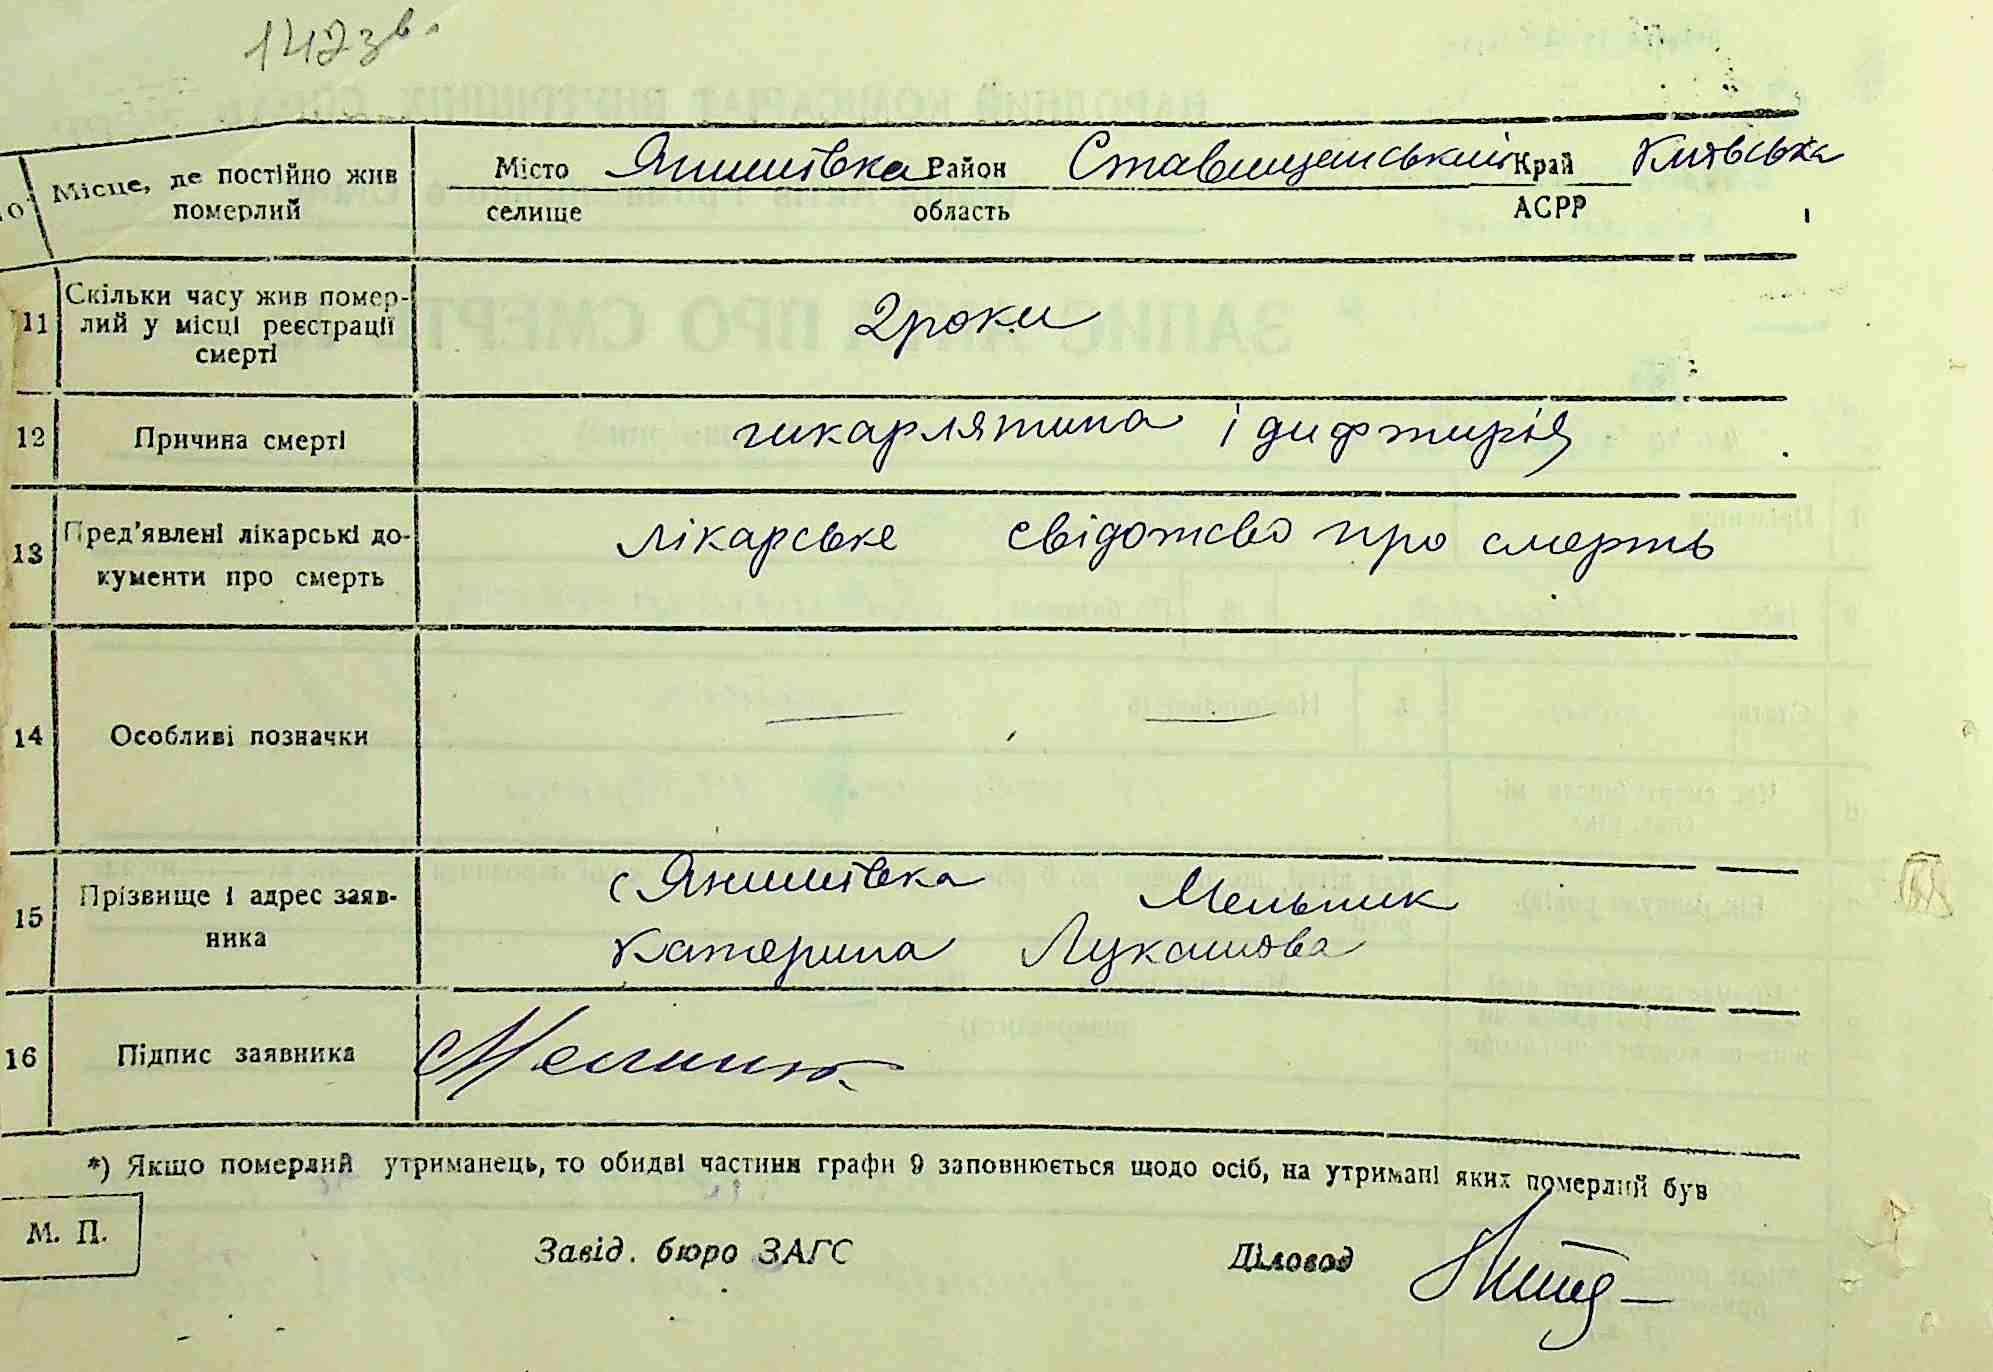 147зв.
10 Місце, де постійно жив померлий Місто Янишівка Район Ставищенський Край Київська
селище область АСРР
11 Скільки часу жив помер-
лий у місці реєстрації
смерті
2 роки
12 Причина смерті шкарлятина і дифтирія
13 Пред'явлені лікарські до-
кументи про смерть
лікарське свідотство про смерть
14 Особливі позначки — —
15 Прізвище і адрес заяв-
ника
с Янишівка Мельник
Катерина Лукашова
16 Підпис заявника
*) Якщо померлий утриманець, то обидві частини графи 9 заповнюється щодо осіб, на утримані яких померлий був
М. П.
Завід. бюро ЗАГС Діловод